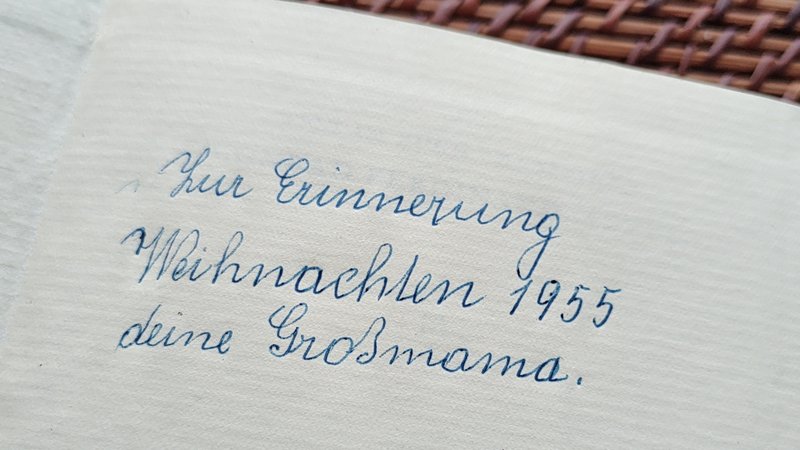 Zur Erinnerung
Weihnachten 1955
deine Großmama.